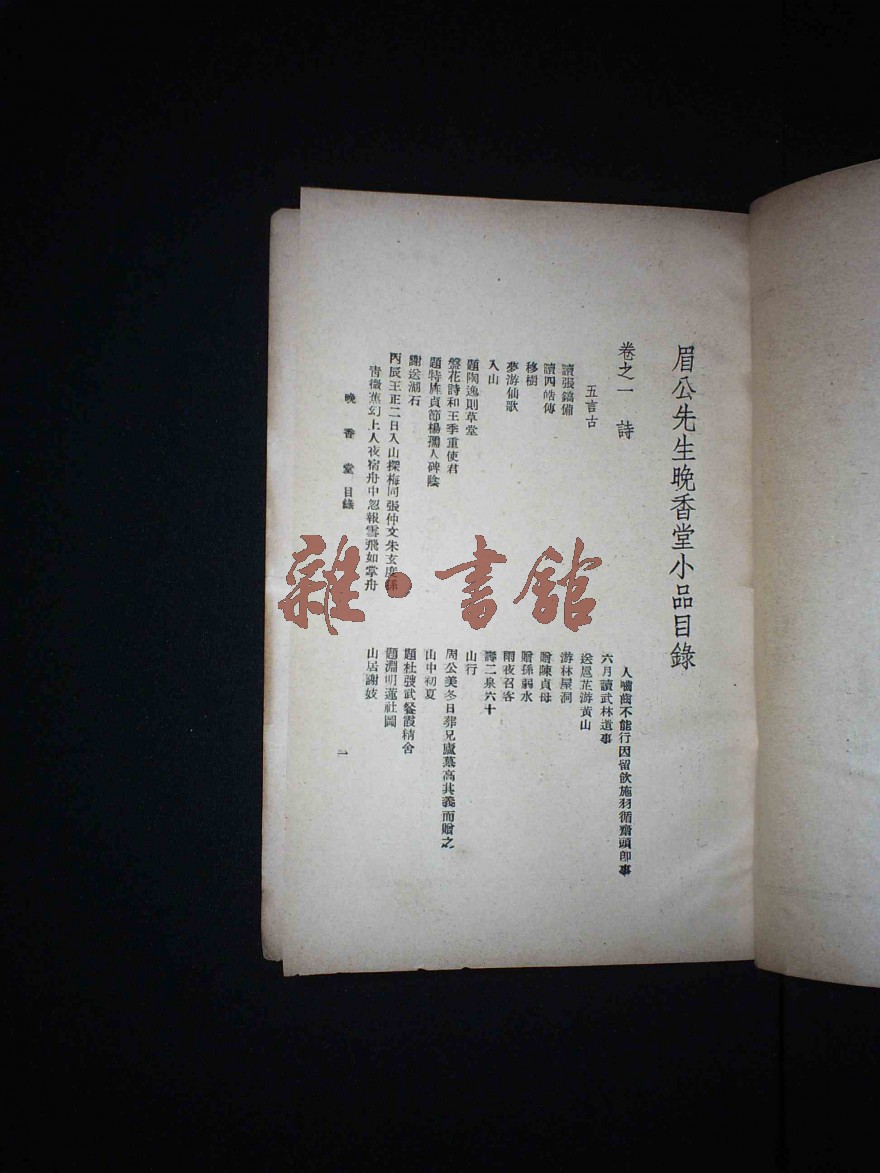 眉公先生晚香堂小品目錄
卷之一 詩
五言古
讀張鎬傳
讀四皓傳
移樹
夢游仙歌
入山
題陶逸則草堂
盤花詩和王季重使君
題特旌貞節楊孺人碑陰
謝送湖石
丙辰王正二日入山探梅同張仲文朱玄度孫
青微蕉幻上人夜宿舟中忽報雪飛如掌舟
人嚙齒不能行因留飲施羽循齋頭即事
六月讀武林道事
送扈芷游黃山
游林屋洞
贈陳貞母
贈孫弱水
雨夜召客
壽二泉六十
山行
周公美冬日葬兄廬墓高其義而贈之
山中初夏
題杜弢武餐霞精舍
題淵明蓮社圖
山居謝妓
晚香堂 目錄
一
雜·書館